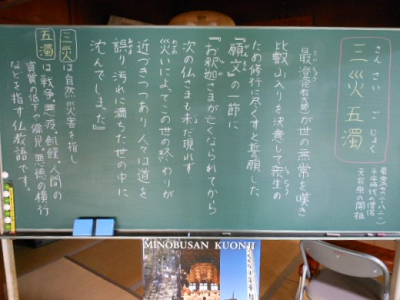 さん さい ご じょく
三災五濁
最澄さまが世の無常を嘆き
比叡山入りを決意して衆生の
ため修行に尽くすと誓願した
『願文』の一節に
『お釈迦さまが亡くなられてから
次の仏さまも未だ現れず
災いによってこの世の終わりが
近づきつつあり 人々は道を
誤り汚れに満ちた世の中に
沈んでしまった』
三災は自然災害を指し
五濁は戦争、悪疫、飢饉、人間の
資質の低下や偏見、悪徳の横行
などを指す仏教語です。
平安時代の僧侶
天台宗の開祖
MINOBUSAN KUONJI